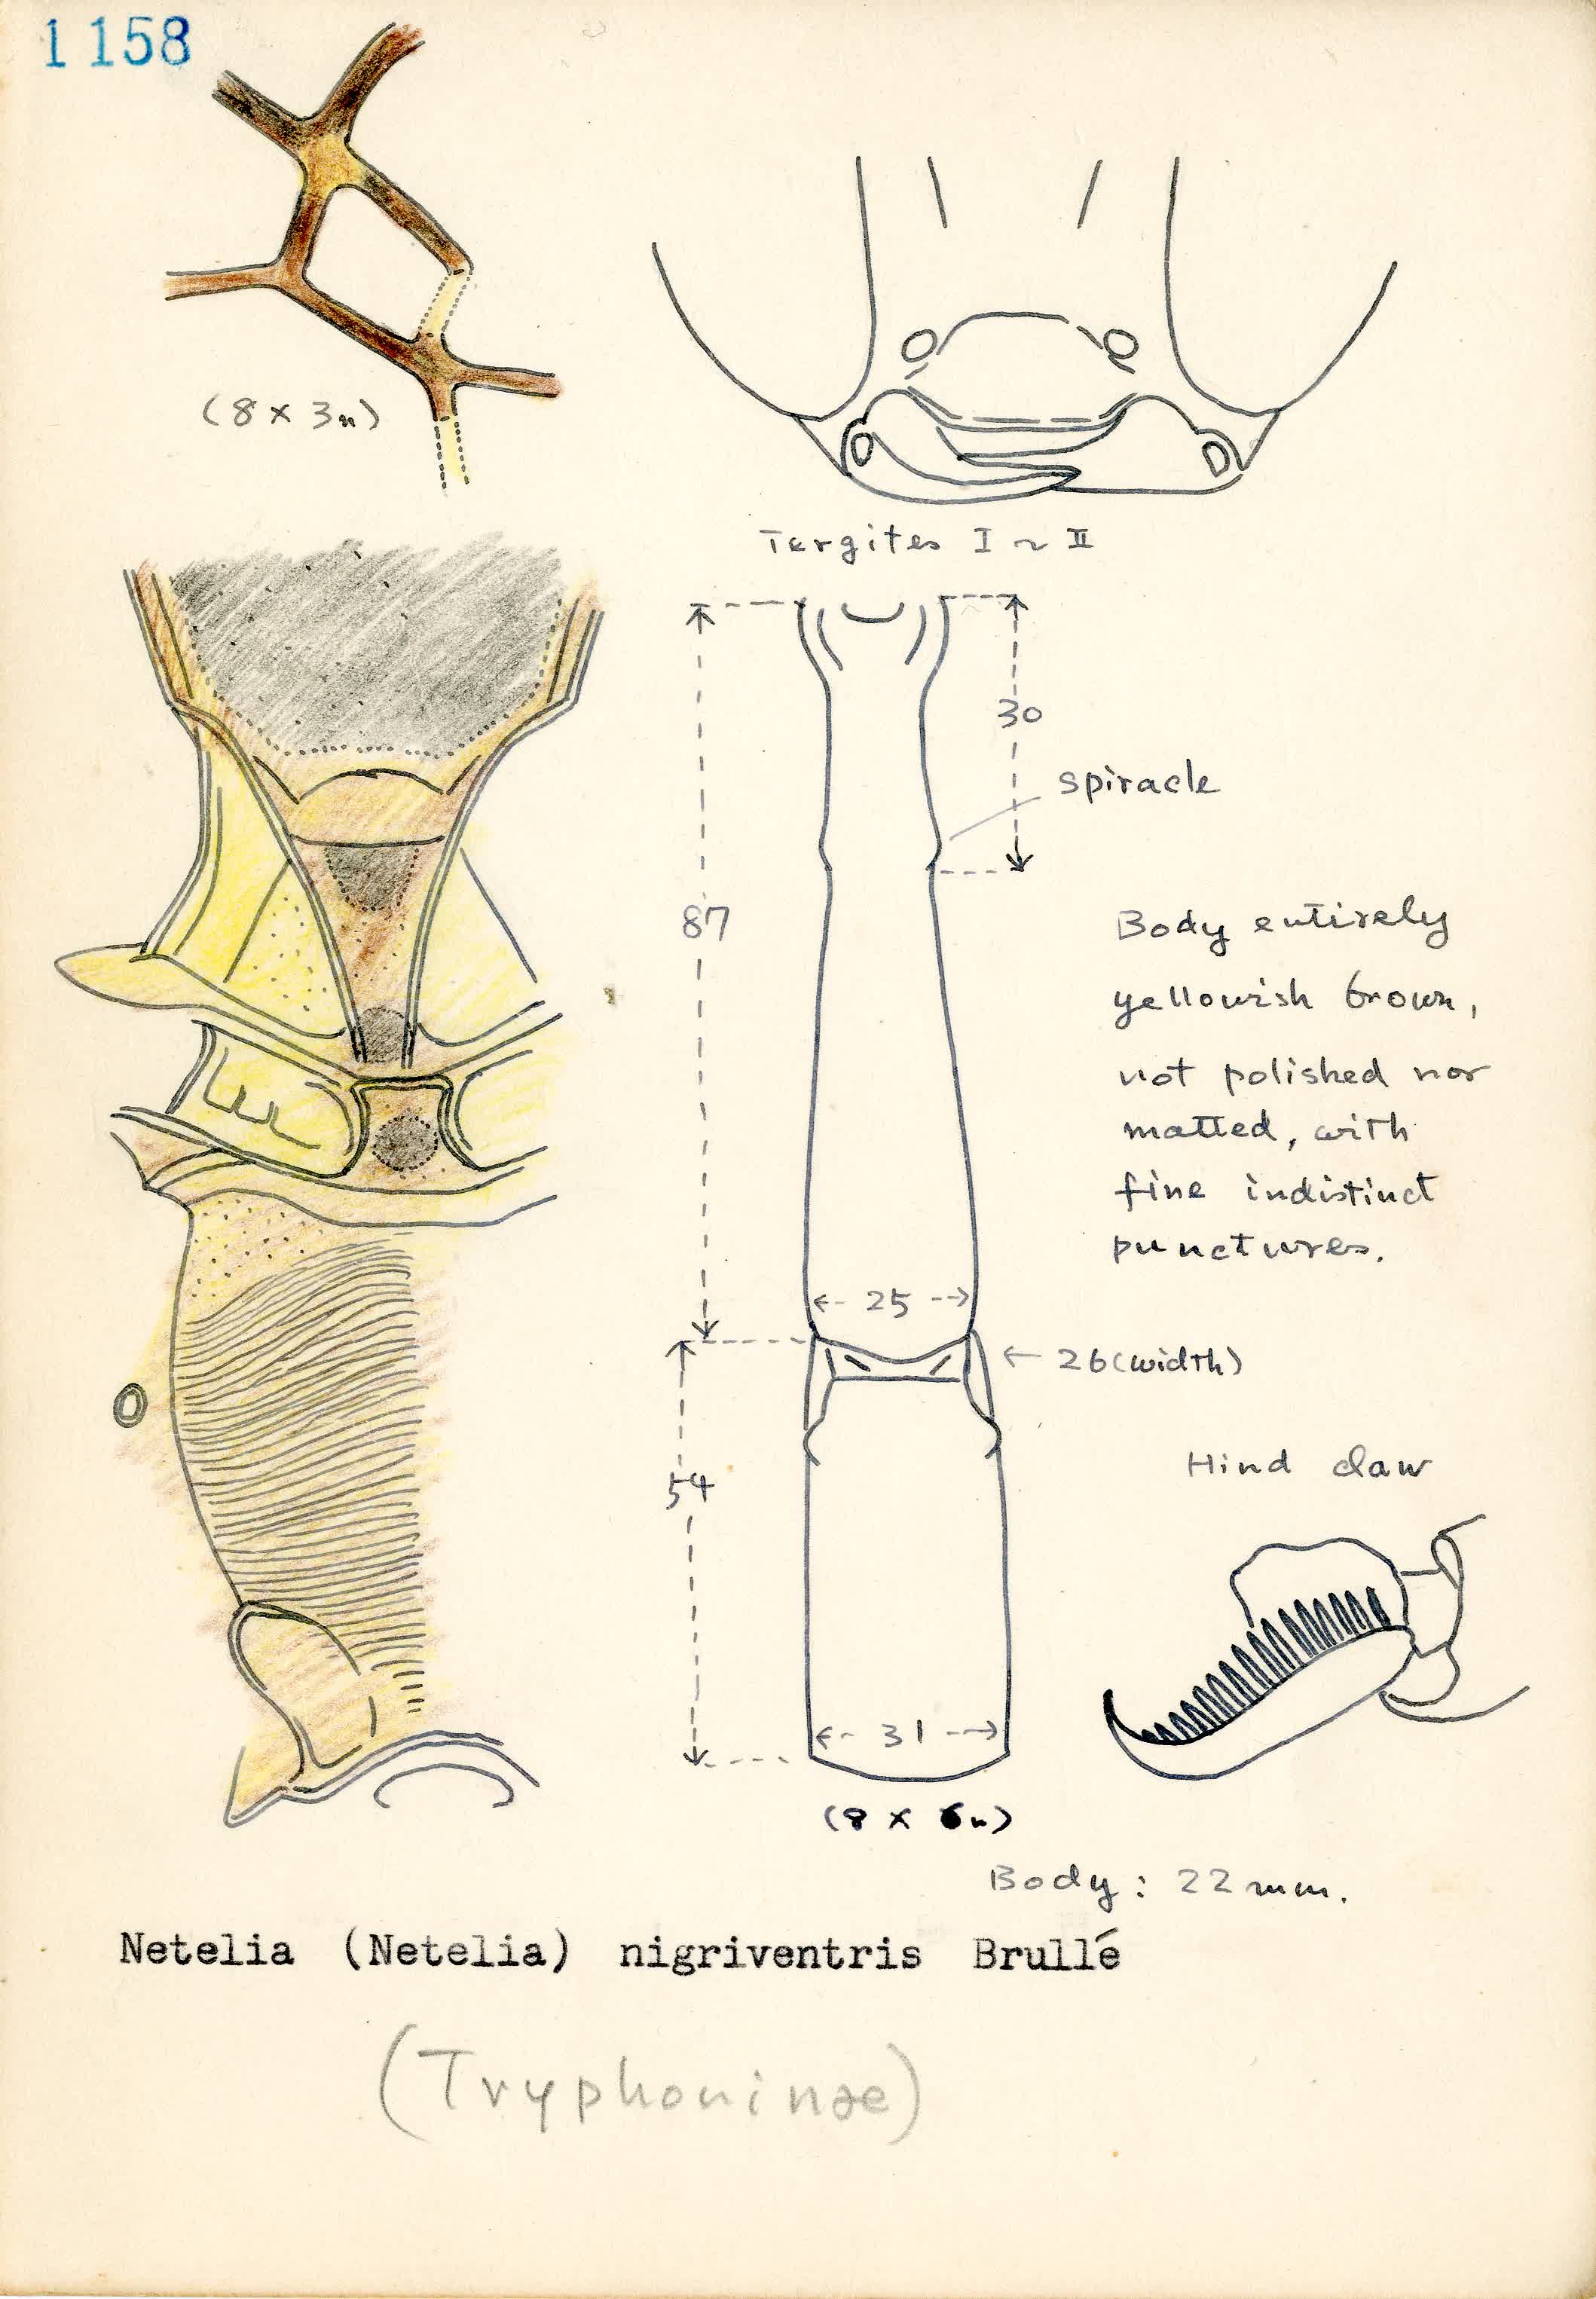 1158
(8 x 3n)
Tergites I ~ II
30
spiracle
87
Body entirely
yellowish brown,
not polished nor
matted, with
fine indistinct
punctures.
25
26 (width)
54
Hind claw
31
(8 x 6n)
Body: 22 mm.
Netelia (Netelia) nigriventris Brullé
(Tryphoninae)